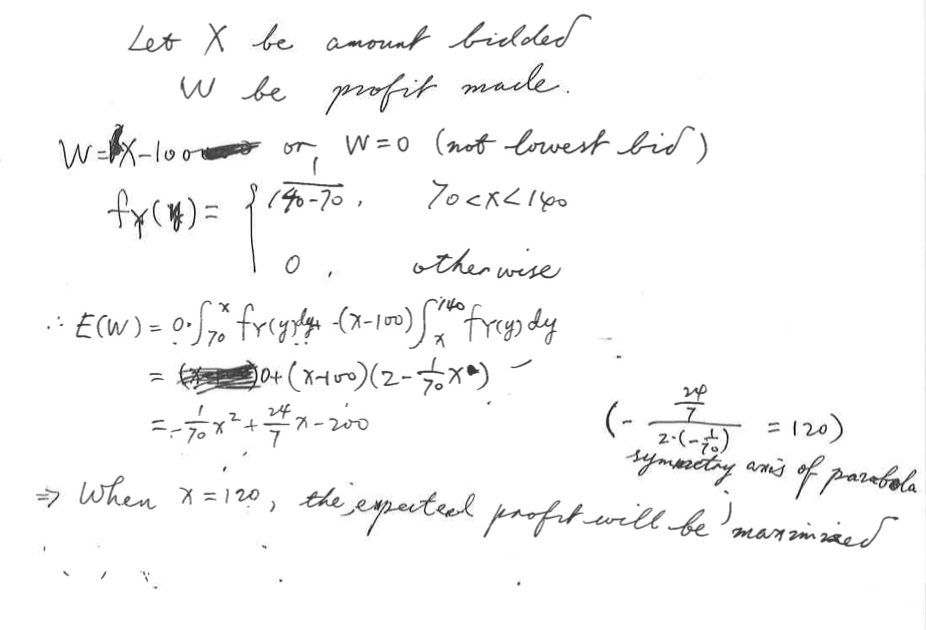 Let X be amount bidded
W be profit made.
W = X-100 or, W=0 (not lowest bid)
fY(y) = { 1/(140-70), 70<x<140
0, otherwise
∴ E(W) = 0·∫_70^x fY(y)dy + (x-100)∫_x^140 fY(y)dy
= 0+(x-100)(2-1/70 x)
= -1/70 x² + 24/7 x - 200
(- (24/7)/(2·(-1/70)) = 120)
symmetry axis of parabola
⇒ When x = 120, the expected profit will be maximized